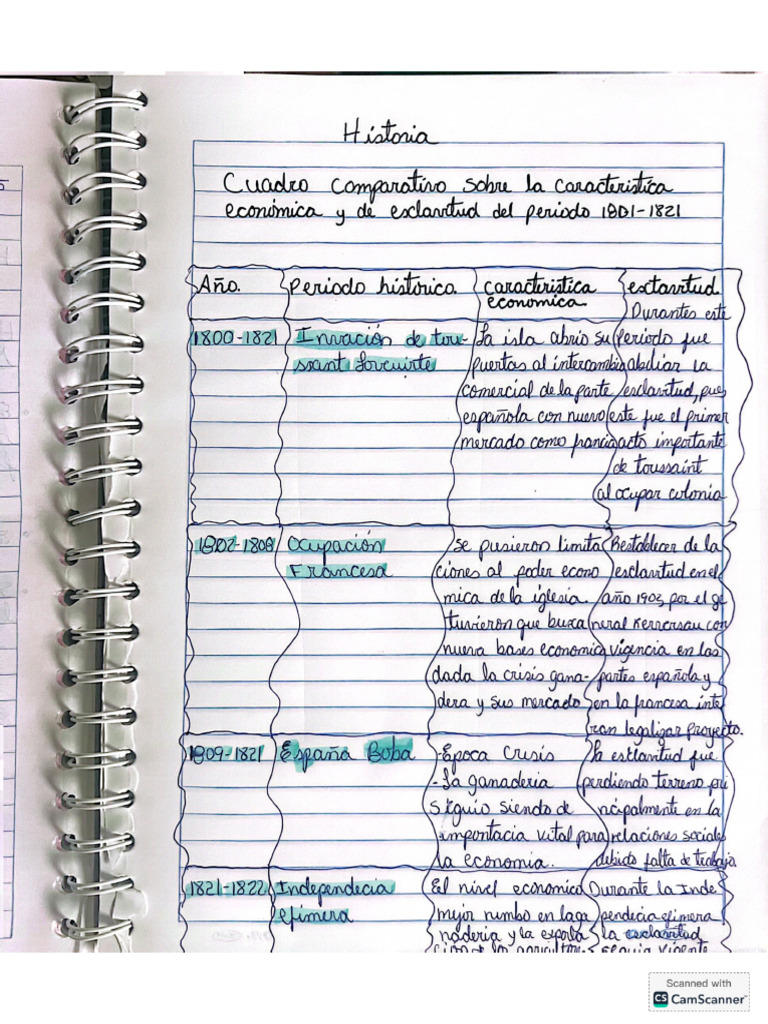 Historia
Cuadro comparativo sobre la caracteristica
económica y de esclavitud del periodo 1801-1821
Año.
Periodo histórico.
caracteristica
economica
esclavitud.
1800-1821
Invación de tou-
ssant
La isla abrio su
puertas al intercambio
comercial de la parte
española con nuevo
mercado como francia
Durantes este
periodo fue
la
esclavitud, pues
este fue el primer
acto importante
de toussaint
al ocupar colonia
1802-1808
Ocupación
Francesa
se pusieron limita
ciones al poder econo
mica de la iglesia.
tuvieron que buxa
nueva bases economica
dada la crisis gana-
dera y sus mercado
Restablecer de la
esclavitud en el
año 1903, por el ge
neral Kerversau con
vigencia en las
partes española y
en la francesa inte
ran legalizar proyecto.
1809-1821
España Boba
-Epoca Crisis
-La ganaderia
siguio siendo de
importacia vital para
la economia.
la esclavitud fue
perdiendo terreno pri
ncipalmente en la
relaciones sociales
debido falta de trabajo
1821-1822
Independecia
efimera
El nivel economico
mejor rumbo en laga
naderia y la exporta
cion de los agricultor-
Durante la Inde
pendecia efimera
la esclavitud
seguia vigente
Scanned with
CS CamScanner